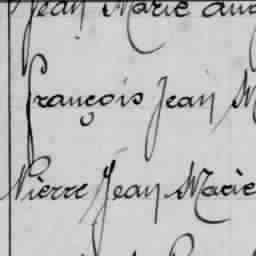 Jean Marie
François Jean
Pierre Jean Marie